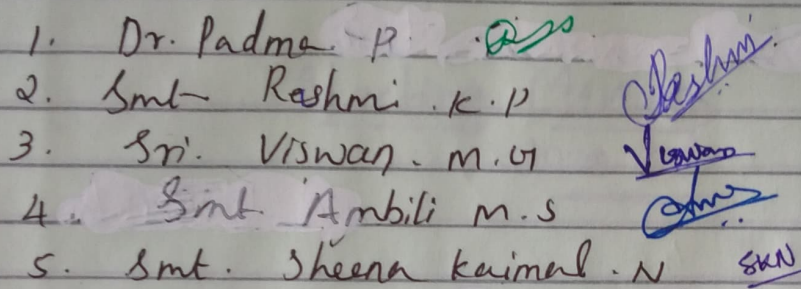 1. Dr. Padma P
2. Smt Reshmi. K. P Reshmi
3. Sri. Viswan. M. G Viswan
4. Smt Ambili M. S
5. Smt. Sheena Kaimal. N SKN